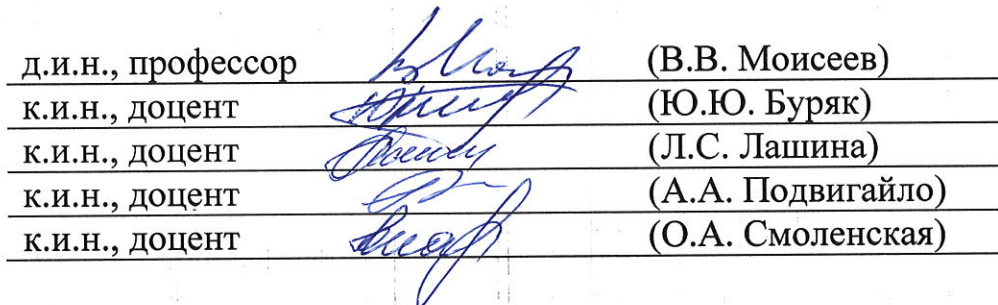 д.и.н., профессор (В.В. Моисеев)
к.и.н., доцент (Ю.Ю. Буряк)
к.и.н., доцент (Л.С. Лашина)
к.и.н., доцент (А.А. Подвигайло)
к.и.н., доцент (О.А. Смоленская)